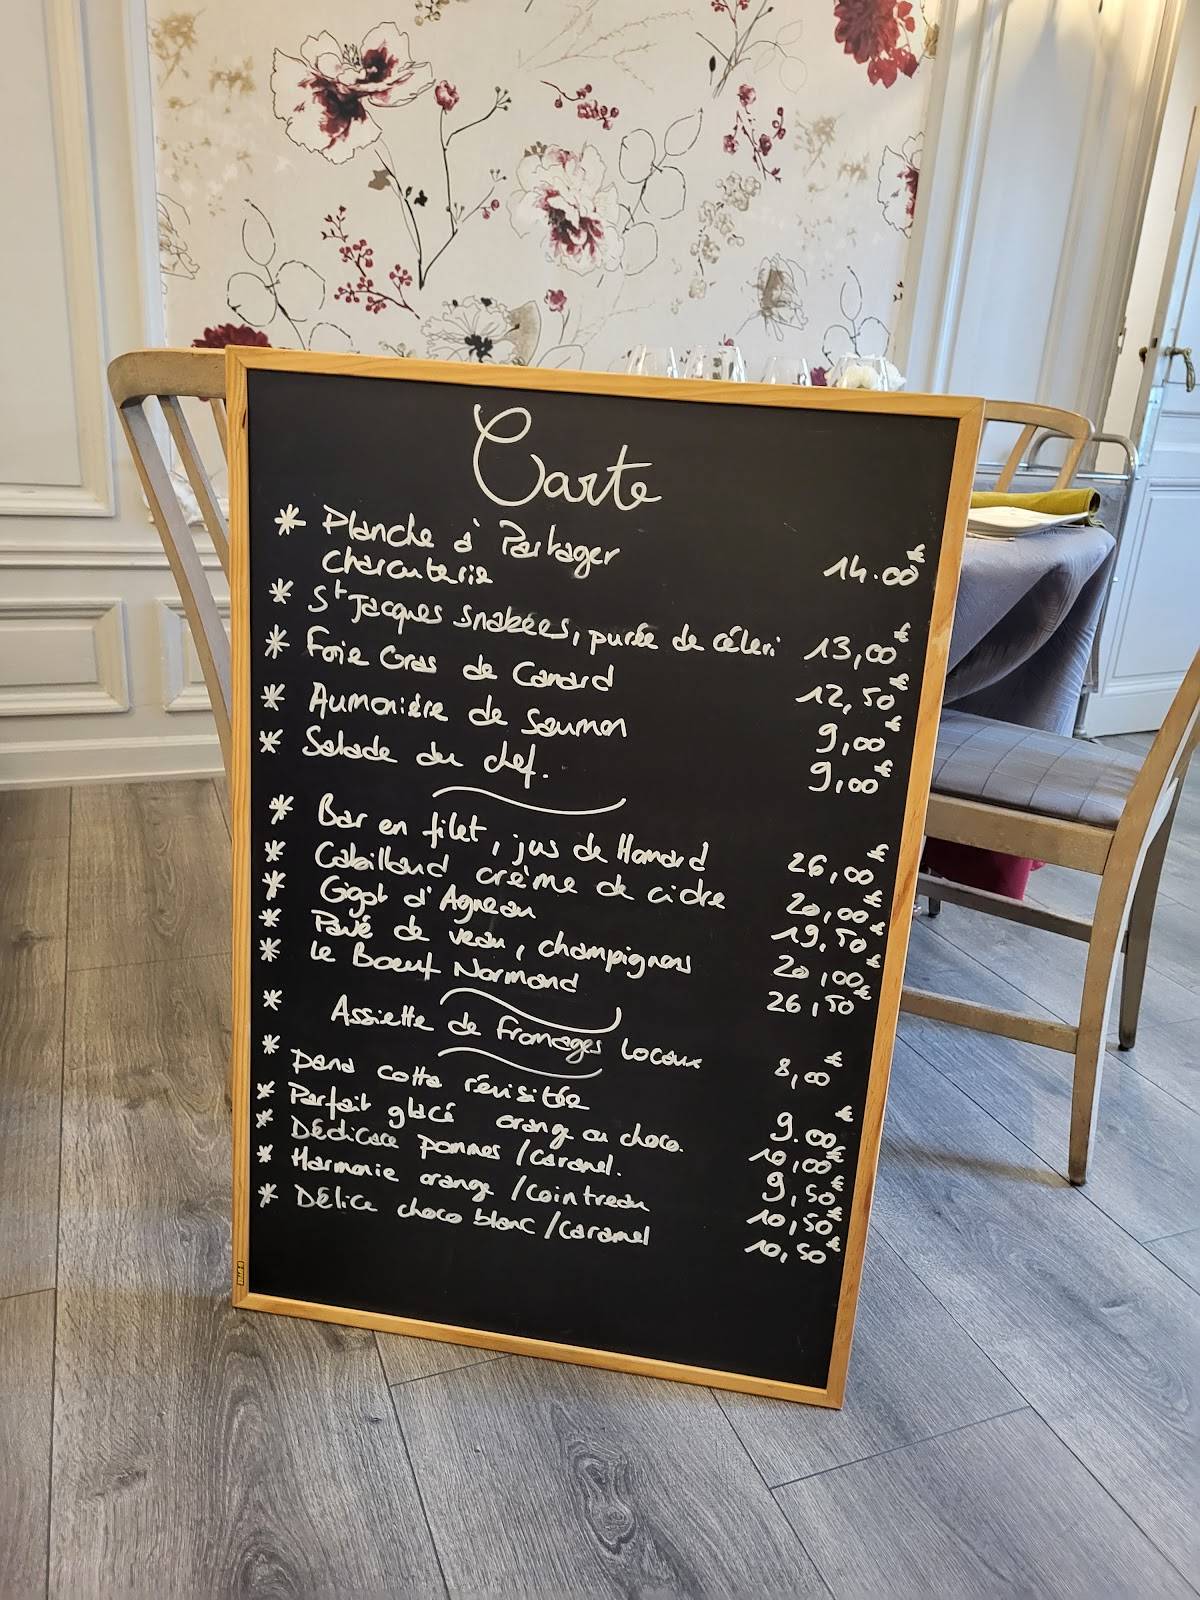 Carte
* Planche à Partager
charcuterie 14.00€
* St Jacques snakées, purée de céleri 13,00€
* Foie Gras de Canard 12,50€
* Aumonière de Saumon 9,00€
* Salade du chef. 9,00€
* Bar en filet, jus de Homard 26,00€
* Cabillaud crème de cidre 20,00€
* Gigot d'Agneau 19,50€
* Pavé de veau, champignons 20,00€
* Le Boeuf Normand 26,50€
* Assiette de fromages locaux 8,00€
* Pana cotta révisitée 9.00€
* Parfait glacé orange ou choco. 10,00€
* Dédicace pommes / caramel. 9,50€
* Harmonie orange / Cointreau 10,50€
* Délice choco blanc / Caramel 10,50€